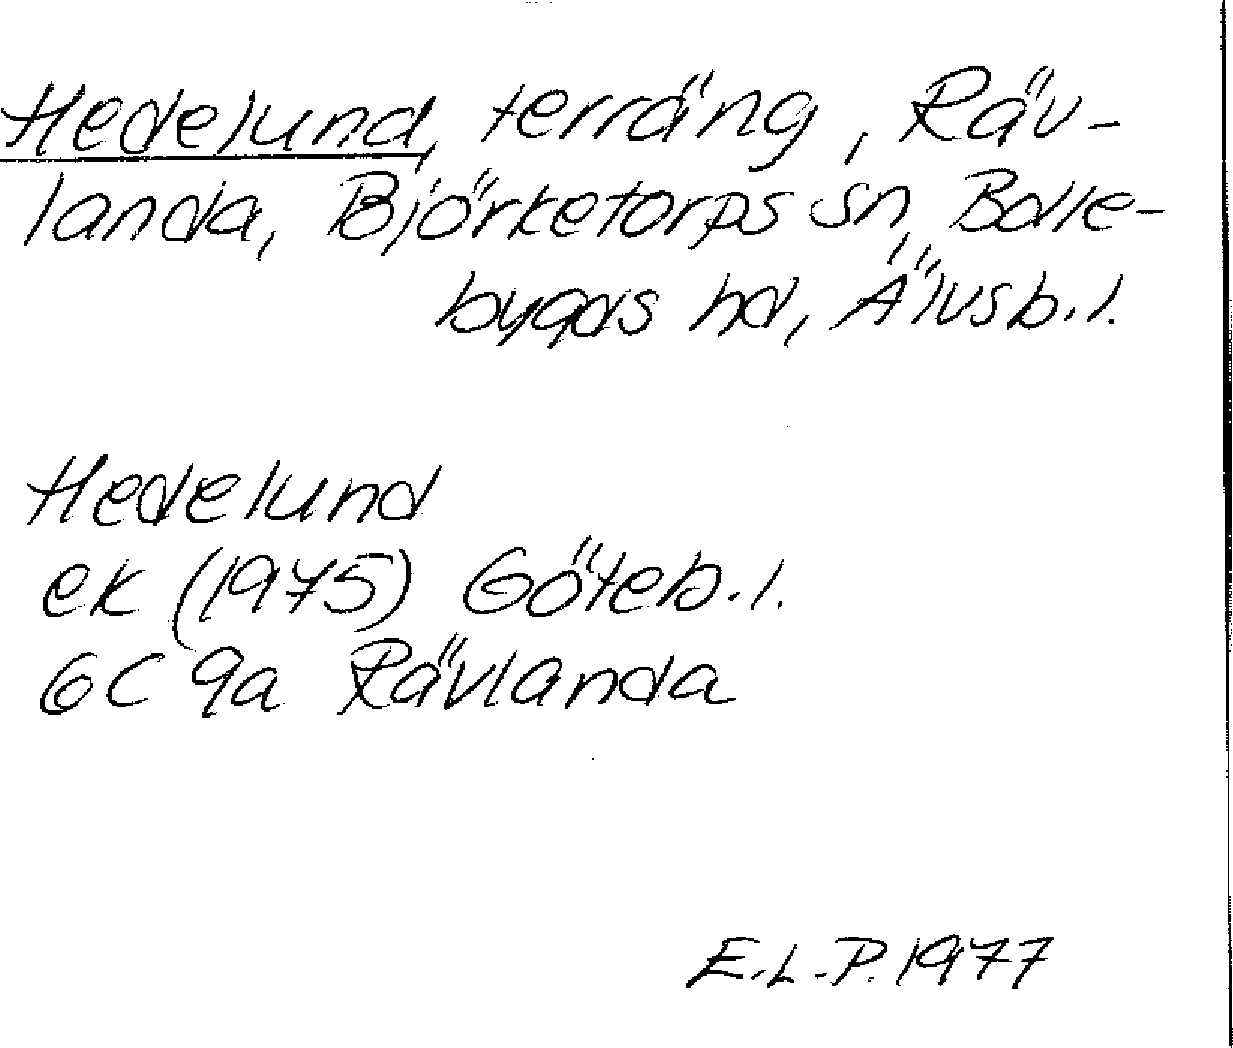 Hedelund, terräng, Räv-
landa, Björketorps sn, Bolle-
bygds hd, Älvsb.l.
Hedelund
ek (1975) Göteb.l.
6C 9a Rävlanda
E.L.P. 1977